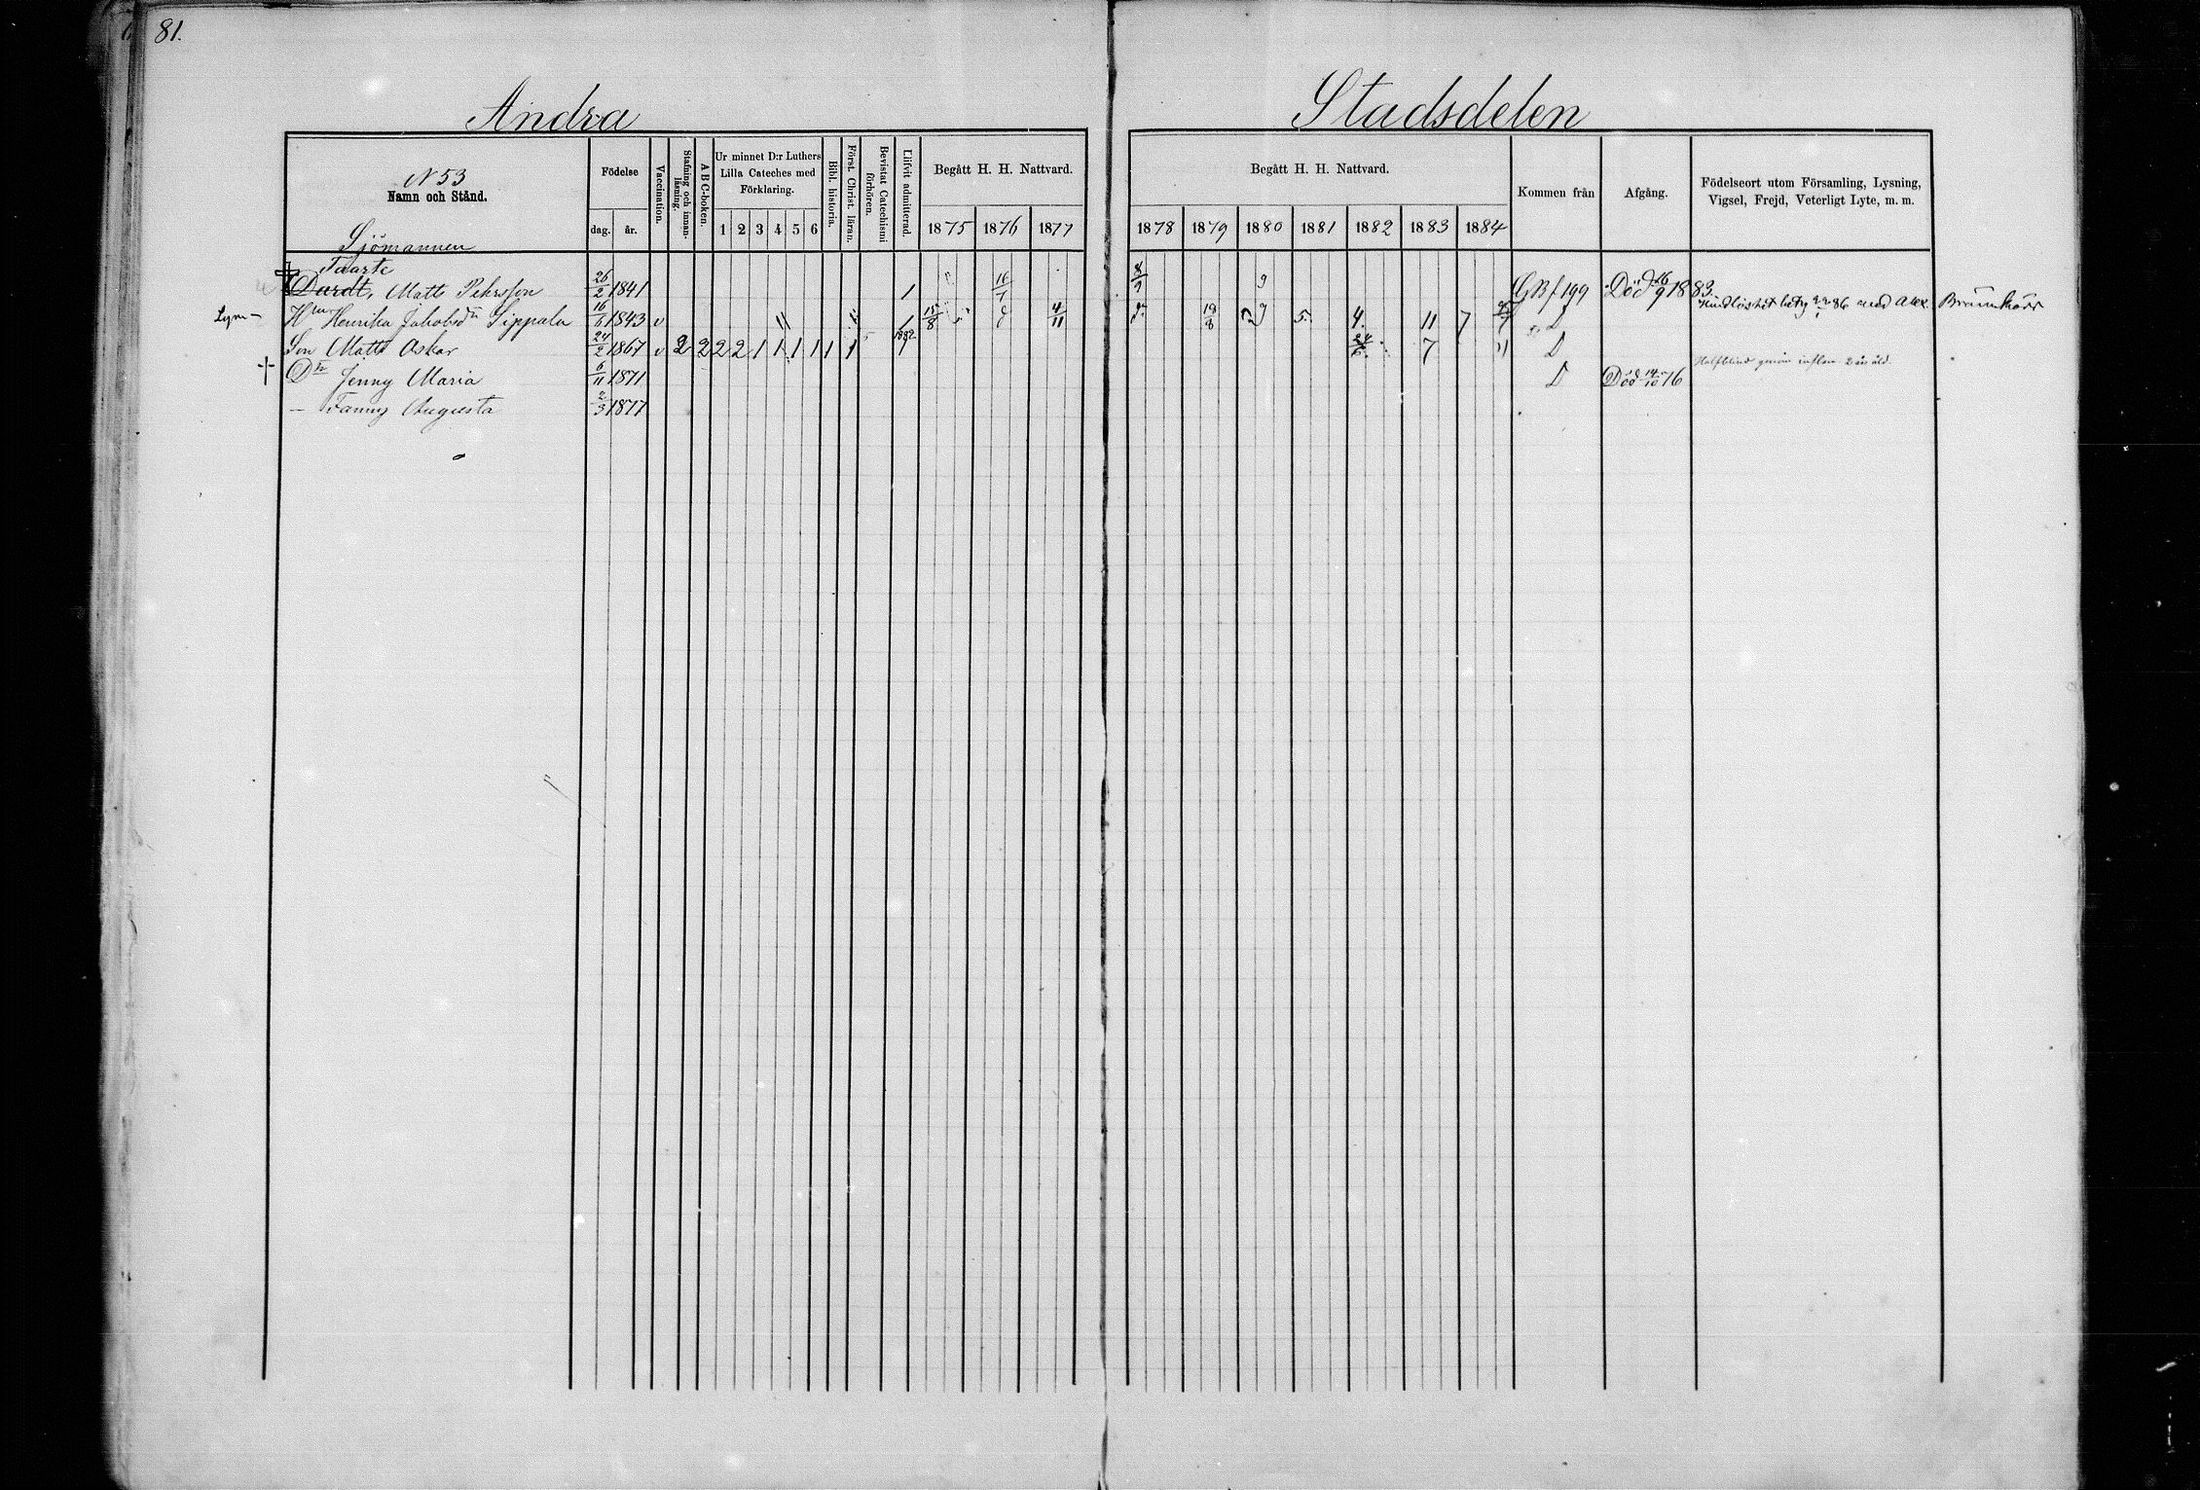 81.
Andra Stadsdelen
N 53
Namn och Stånd.
Födelse
dag. år.
Vaccination.
Stafning och innanläsning.
A B C-boken.
Ur minnet D:r Luthers Lilla Cateches med Förklaring.
1 2 3 4 5 6
Bibl. historia.
Först. Christ. läran.
Bevistat Catechismi förhören.
Blifvit admitterad.
Begått H. H. Nattvard.
1875 1876 1877
Begått H. H. Nattvard.
1878 1879 1880 1881 1882 1883 1884
Kommen från
Afgång.
Födelseort utom Församling, Lysning, Vigsel, Frejd, Veterligt Lyte, m. m.
Sjömannen
Taarte
Dardt, Matts Pehrsson 26/2 1841 1 16/7 8/9 9 GB f 199 Död 16/9 1883.
Lysn – Hru Henrika Jakobsdr Sippala 16/6 1843 v 1 15/8 4/11 19/8 9 5. 4. 11 7 D Hindlöshetsbetyg 86 med Alex. Brännkärr
Son Matts Oskar 24/2 1867 v 2 2 2 2 1 1 1 1 1 1 1882 1 24/6 7 11 D
† Dr Jenny Maria 6/11 1871 D Död 14/10 76 Halfblind genom inflam. 2 år åld.
– Fanny Augusta 2/3 1877